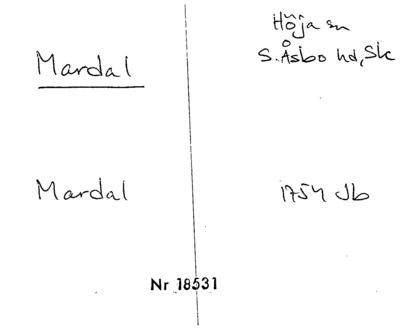 Mardal
Höja sn
S. Åsbo hd, Sk
Mardal
1754 Jb
Nr 18531